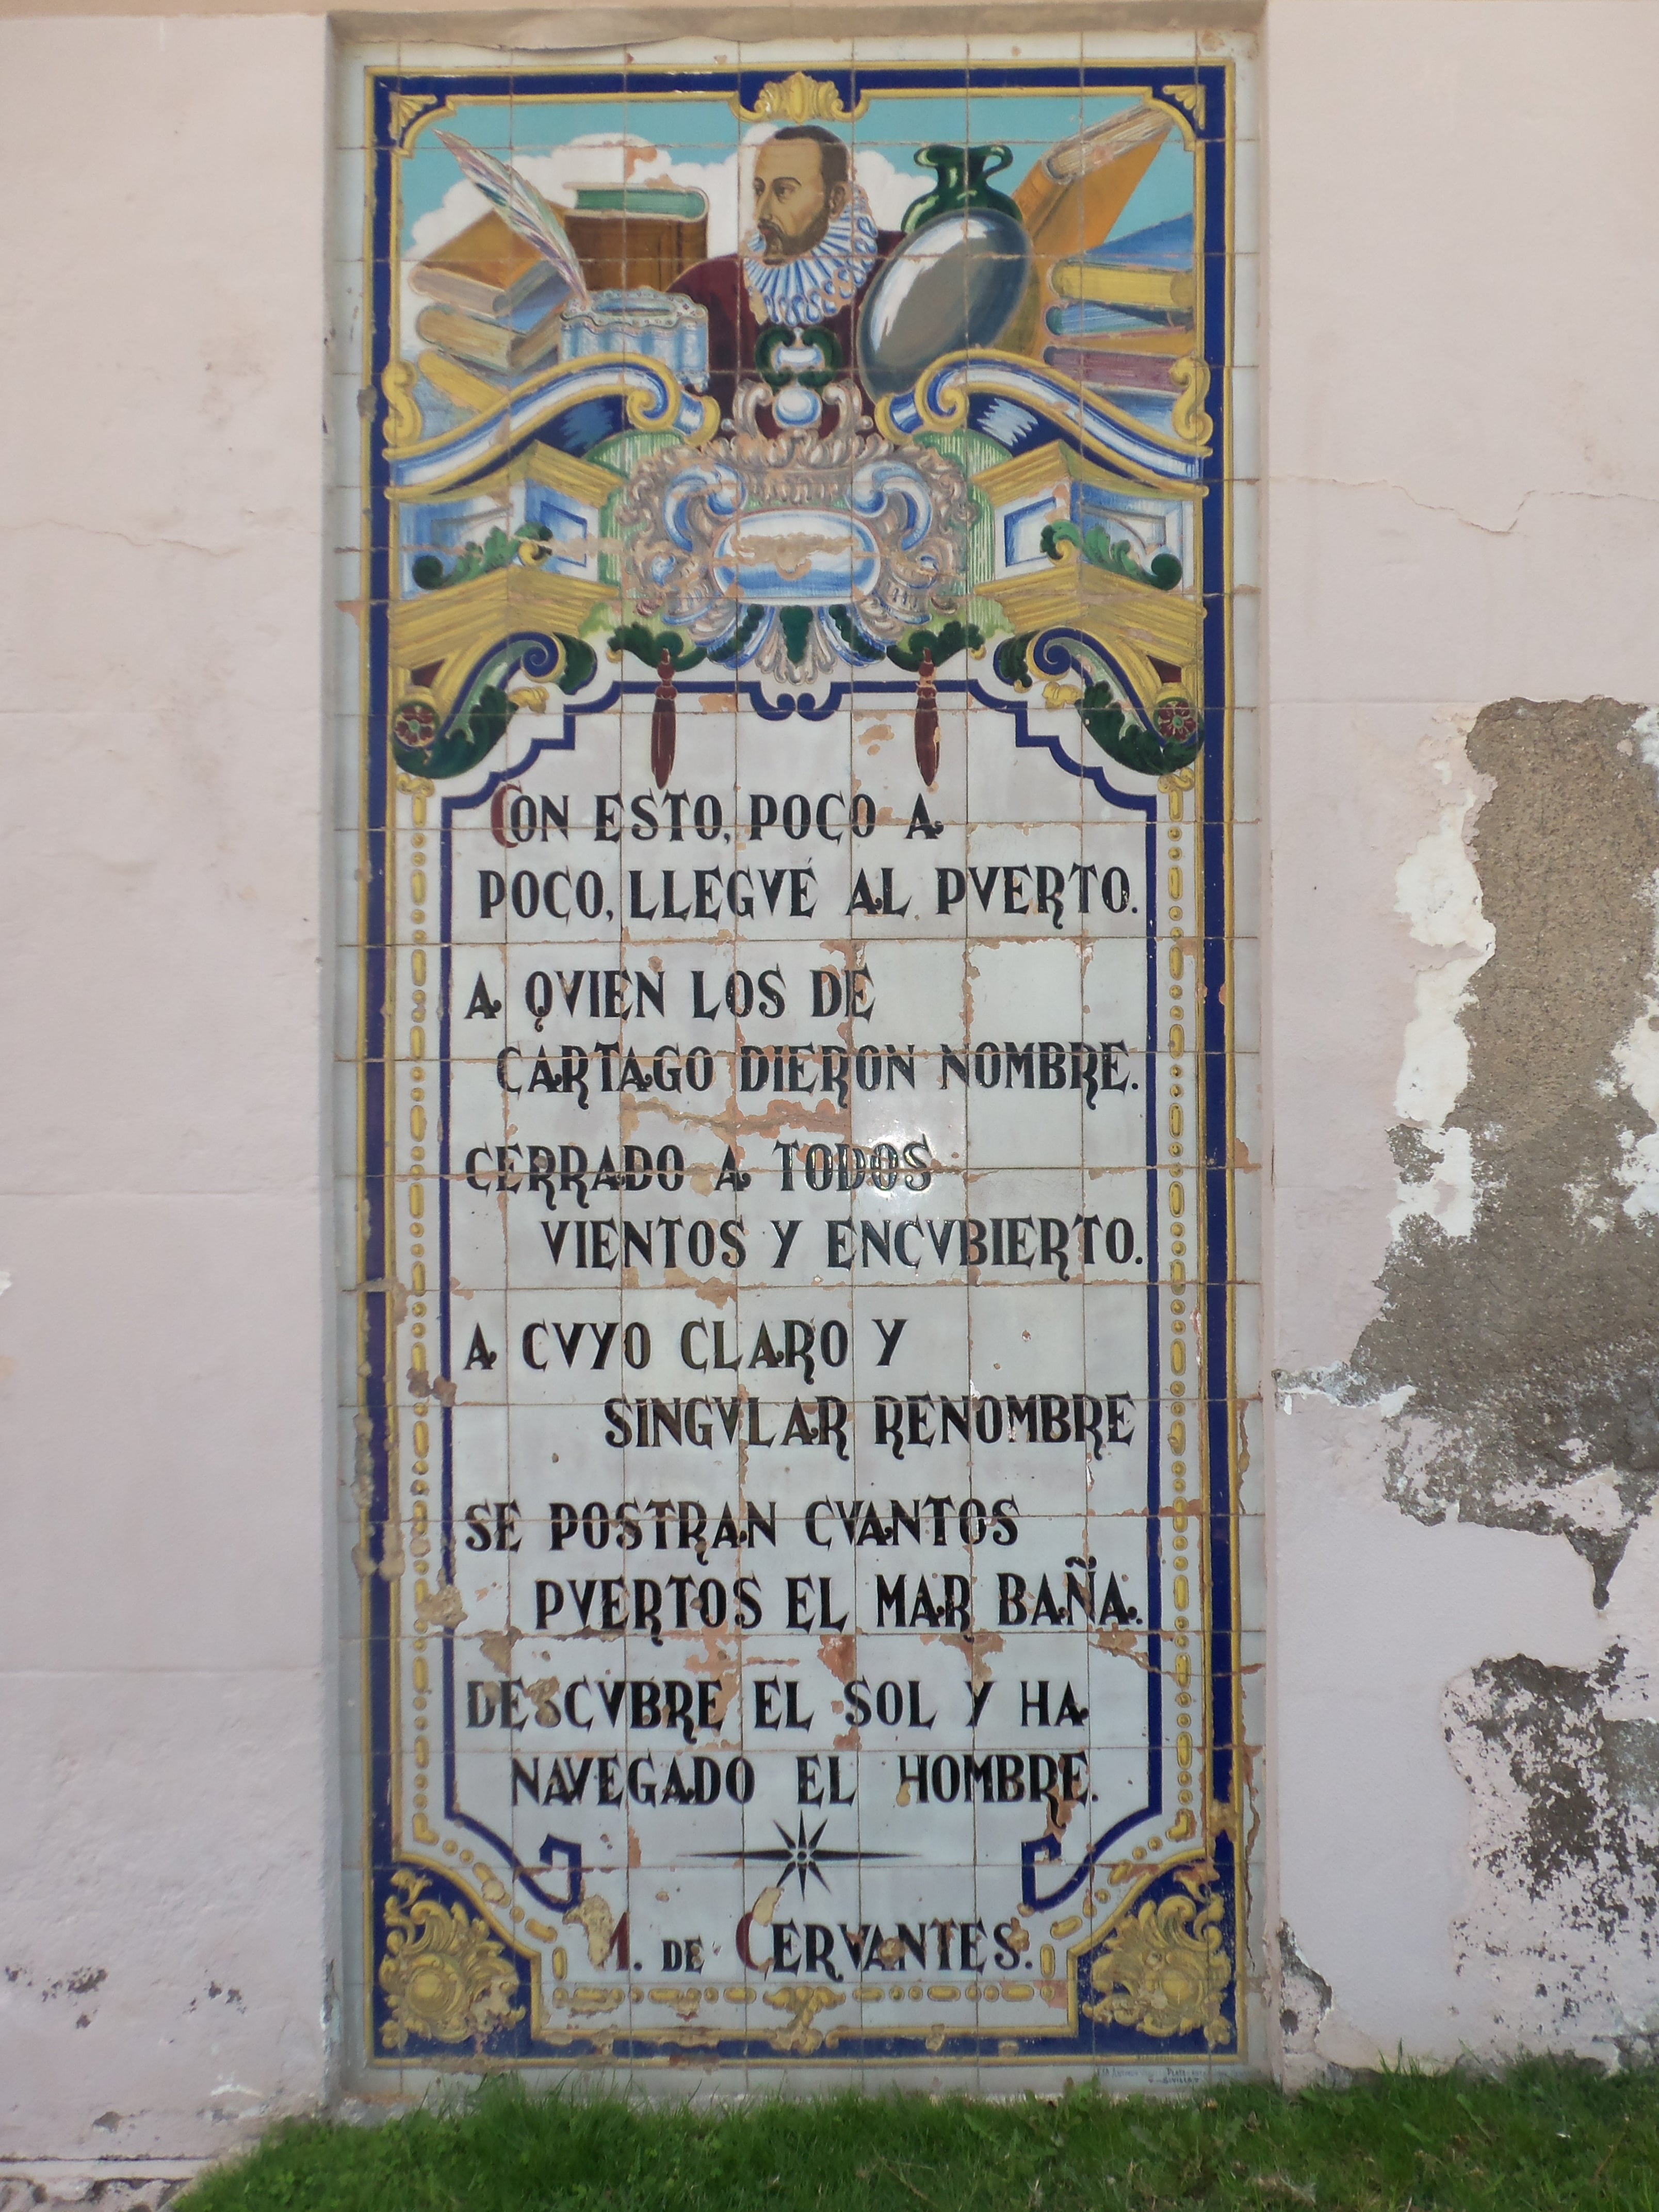 CON ESTO, POCO A
POCO, LLEGVÉ AL PVERTO.
A QVIEN LOS DE
CARTAGO DIERON NOMBRE.
CERRADO A TODOS
VIENTOS Y ENCVBIERTO.
A CVYO CLARO Y
SINGVLAR RENOMBRE
SE POSTRAN CVANTOS
PVERTOS EL MAR BAÑA.
DESCVBRE EL SOL Y HA
NAVEGADO EL HOMBRE.
M. DE CERVANTES.